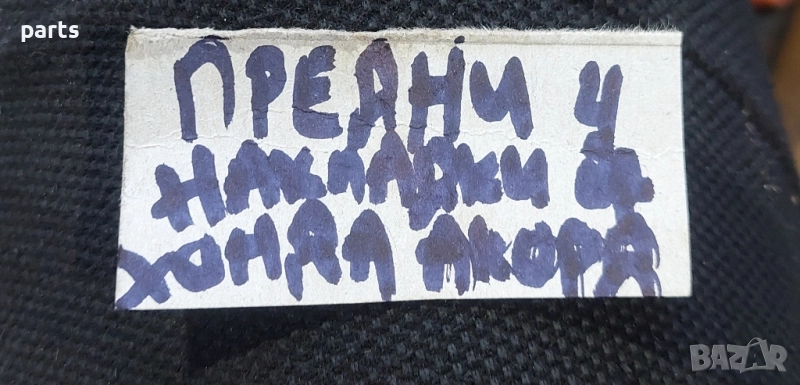 parts
ПРЕДНИ Ч
НАКЛАДКИ
ХОНДА АКОРД
BAZAR